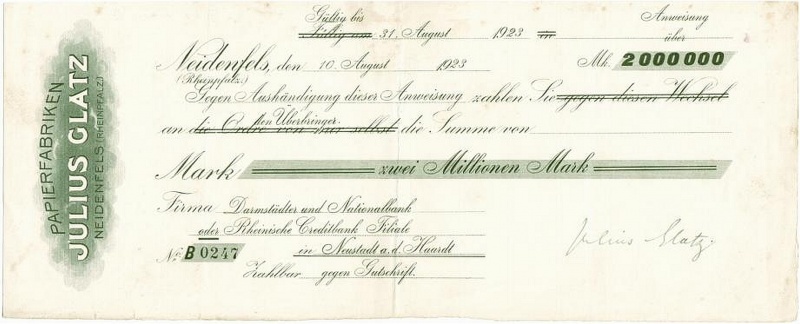 PAPIERFABRIKEN
JULIUS GLATZ
NEIDENFELS (RHEINPFALZ)
Gültig bis
Gültig am 31. August 1923 in
Anweisung
über
Neidenfels, den 10 August 1923 Mk. 2000000
(Rheinpfalz)
Gegen Aushändigung dieser Anweisung zahlen Sie gegen diesen Wechsel
den Überbringer
an die Ordre von mir selbst die Summe von
Mark zwei Millionen Mark
Firma Darmstädter und Nationalbank
oder Rheinische Creditbank Filiale
No. B 0247 in Neustadt a.d. Haardt
Zahlbar gegen Gutschrift.
Julius Glatz.